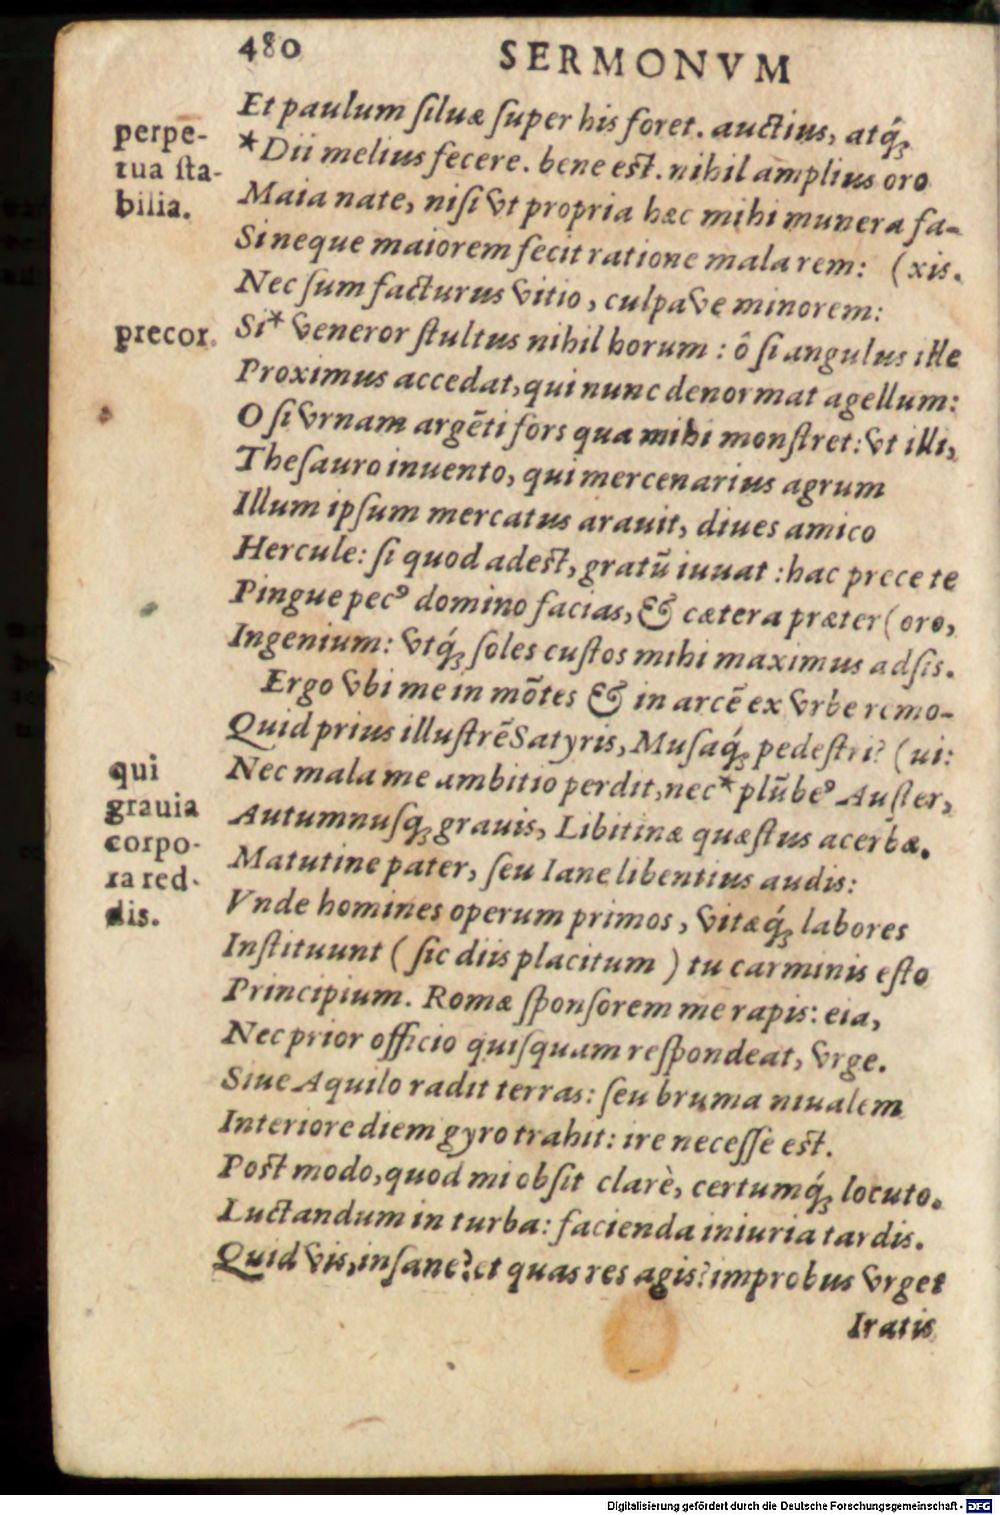 480 SERMONVM
Et paulum ſiluæ ſuper his foret. auctius, atq́ꝫ
perpe-
tua ſta-
bilia.
*Dii melius fecere. bene eſt. nihil amplius oro
Maia nate, niſi vt propria hæc mihi munera fa-
Si neque maiorem feci ratione mala rem: (xis.
Nec ſum facturus vitio, culpave minorem:
precor.
Si* veneror ſtultus nihil horum: ô ſi angulus ille
Proximus accedat, qui nunc denormat agellum:
O ſi vrnam argēti fors qua mihi monſtret: vt illi,
Theſauro inuento, qui mercenarius agrum
Illum ipſum mercatus arauit, diues amico
Hercule: ſi quod adeſt, gratū iuuat: hac prece te
Pingue pecꝰ domino facias, & cætera præter (oro,
Ingenium: vtq́ꝫ ſoles cuſtos mihi maximus adſis.
Ergo vbi me in mōtes & in arcē ex vrbe remo-
Quid prius illuſtrē Satyris, Muſaq́ꝫ pedeſtri? (ui:
qui
grauia
corpo-
ra red-
dis.
Nec mala me ambitio perdit, nec* plūbeꝰ Auſter,
Autumnuſqꝫ grauis, Libitinæ quæſtus acerbæ.
Matutine pater, ſeu Iane libentius audis:
Vnde homines operum primos, vitæq́ꝫ labores
Inſtituunt (ſic diis placitum) tu carminis eſto
Principium. Romæ ſponſorem me rapis: eia,
Nec prior officio quiſquam reſpondeat, vrge.
Siue Aquilo radit terras: ſeu bruma niualem
Interiore diem gyro trahit: ire neceſſe eſt.
Poſt modo, quod mi obſit clarè, certumq́ꝫ locuto.
Luctandum in turba: facienda iniuria tardis.
Quid vis, inſane? et quas res agis? improbus vrget
Iratis
Digitalisierung gefördert durch die Deutsche Forschungsgemeinschaft - DFG